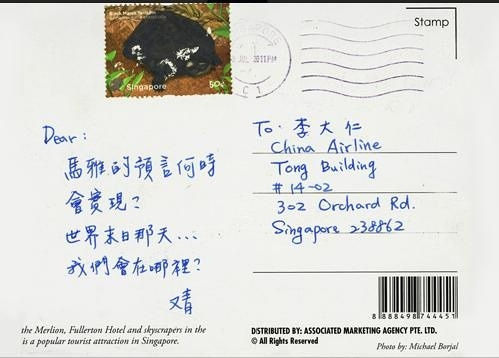 Singapore
50¢
Stamp
Dear:
馬雅的預言何時
會實現?
世界末日那天...
我們會在哪裡?
又青
To. 李大仁
China Airline
Tong Building
#14-02
302 Orchard Rd.
Singapore 238862
the Merlion, Fullerton Hotel and skyscrapers in the
is a popular tourist attraction in Singapore.
8888498744451
DISTRIBUTED BY: ASSOCIATED MARKETING AGENCY PTE. LTD.
© All Rights Reserved
Photo by: Michael Borjal